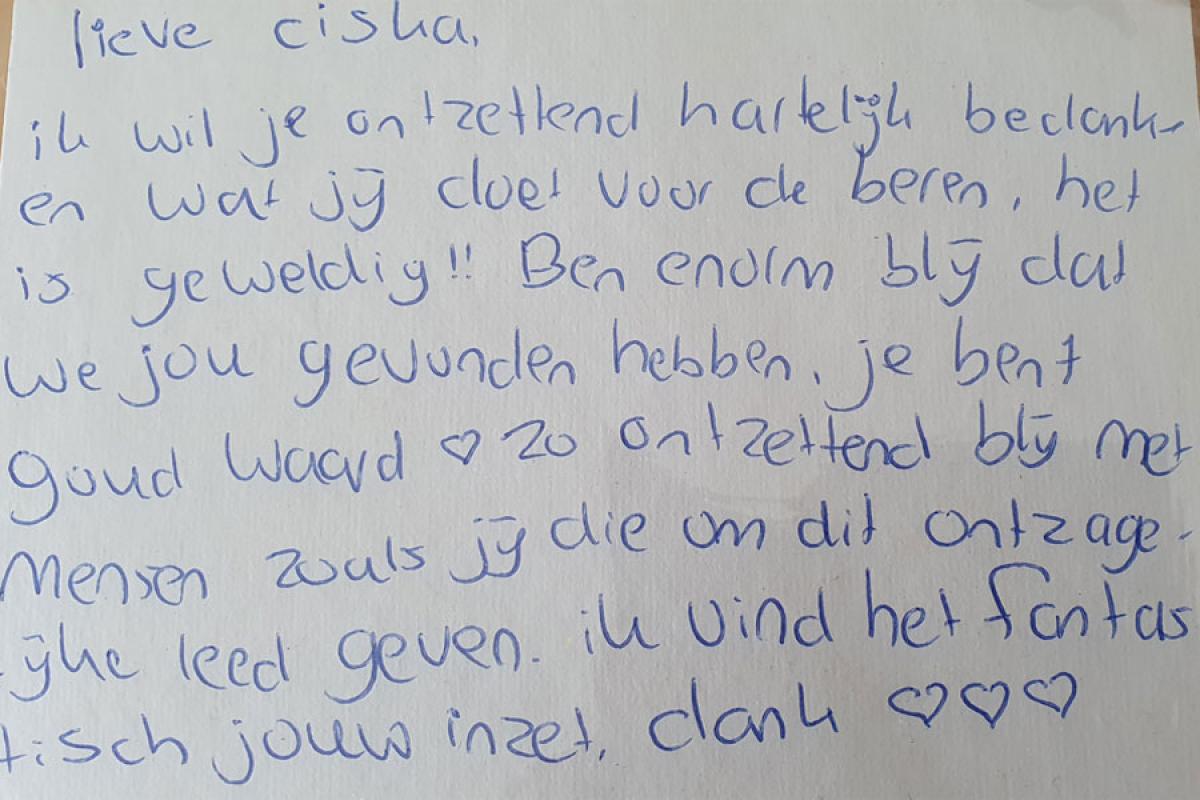 lieve ciska,
ik wil je ontzettend hartelijk bedank-
en wat jij doet voor de beren, het
is geweldig!! Ben enorm blij dat
we jou gevonden hebben, je bent
goud waard ♡ zo ontzettend blij met
mensen zoals jij die om dit ontzage-
lijke leed geven. ik vind het fantas
tisch jouw inzet, dank ♡♡♡